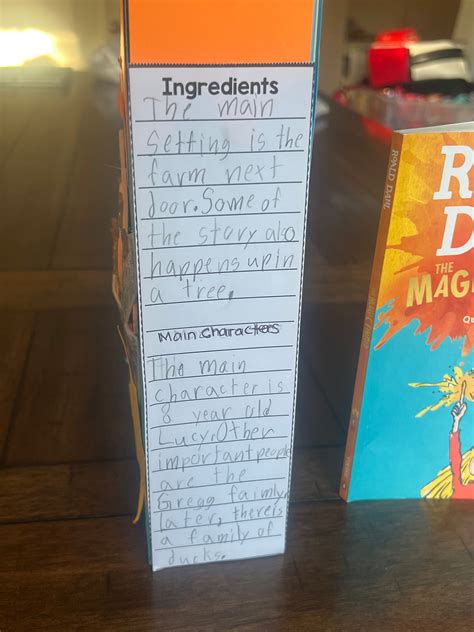 Ingredients
The main
Setting is the
farm next
door. Some of
the story also
happens up in
a tree.
Main Characters
The main
character is
8 year old
Lucy. Other
important people
are the
Gregg faimly.
later, there is
a family of
ducks.
ROALD DAHL
R
D
THE
MAG